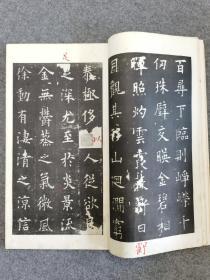 百尋下臨則崢嶸千
仞珠璧交映金碧相
暉照灼雲霞蔽
月觀其移山迴澗窮
泰極侈人從欲
足
深尤至於炎景流
金無鬱蒸之氣微風
徐動有淒清之涼信